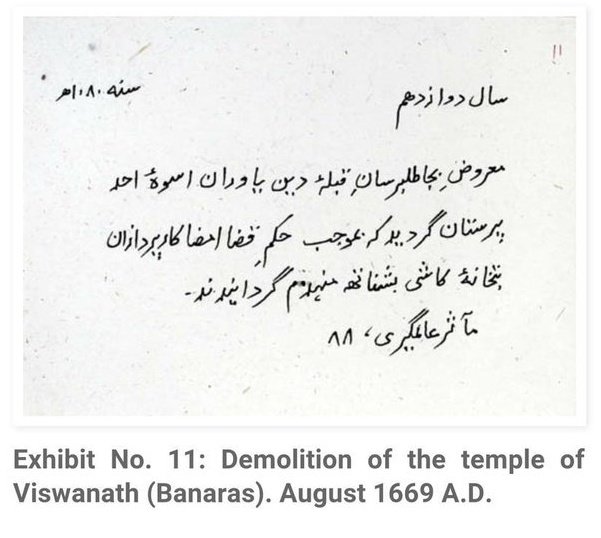 ۱۱
سال دوازدهم
سنه ۱۰۸۰ھ
معروضِ بجا طلبرسانِ قبلهٔ دین یاوران اسوهٔ احد
پرستان گردید که بموجب حکمِ قضا امضا کارپردازان
بتخانهٔ کاشی بشناتھ منہدم گردانیدند۔
مآثر عالمگیری، ۸۸
Exhibit No. 11: Demolition of the temple of
Viswanath (Banaras). August 1669 A.D.